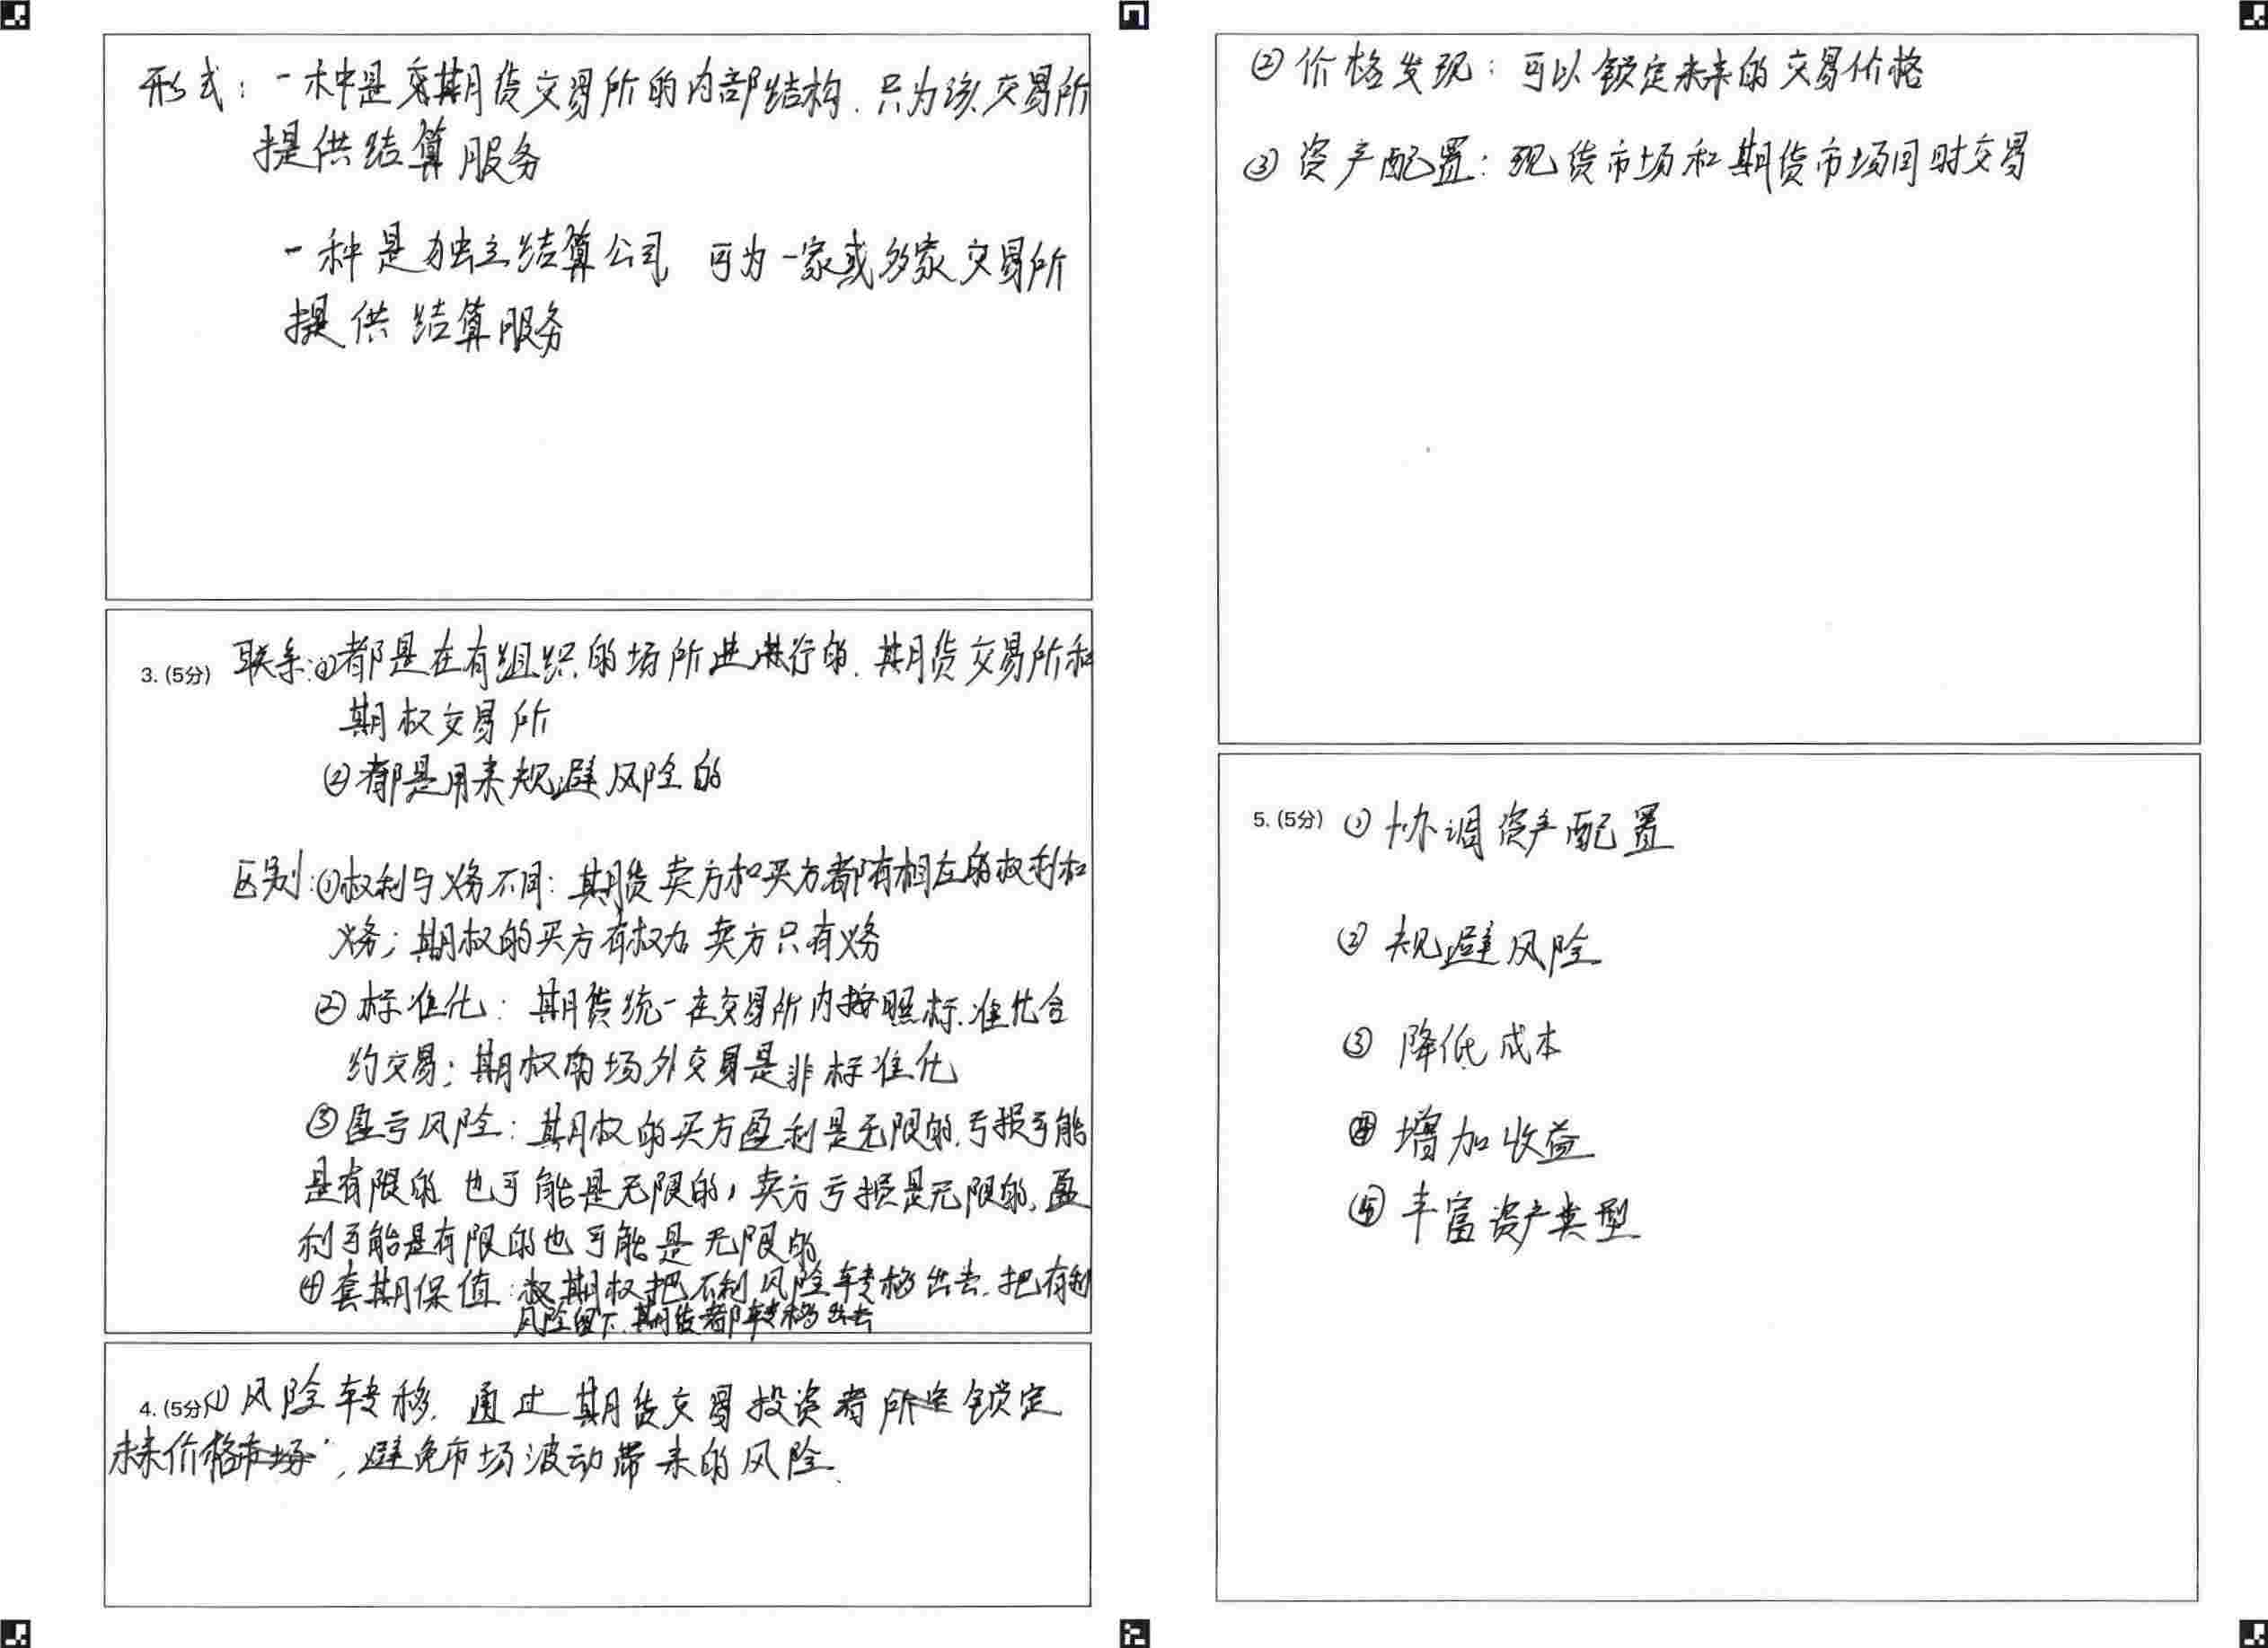 形式：一种是期货交易所的内部结构.只为该交易所
提供结算服务
一种是独立结算公司 可为一家或多家交易所
提供结算服务
3. (5分) 联系:①都是在有组织的场所进行的.期货交易所和
期权交易所
②都是用来规避风险的
区别:①权利与义务不同：期货卖方和买方都有相应的权利和
义务；期权的买方有权力 卖方只有义务
②标准化：期货统一在交易所内按照标准化合
约交易；期权的场外交易是非标准化
③盈亏风险：期权的买方盈利是无限的.亏损可能
是有限的 也可能是无限的，卖方亏损是无限的,盈
利可能是有限的也可能是无限的
④套期保值：期权把不利风险转移出去.把有利
风险留下.期货都转移出去
4. (5分) ①风险转移. 通过期货交易投资者锁定
未来价格，避免市场波动带来的风险.
②价格发现：可以锁定未来的交易价格
③资产配置：现货市场和期货市场同时交易
5. (5分) ①协调资产配置
②规避风险
③降低成本
④增加收益
⑤丰富资产类型